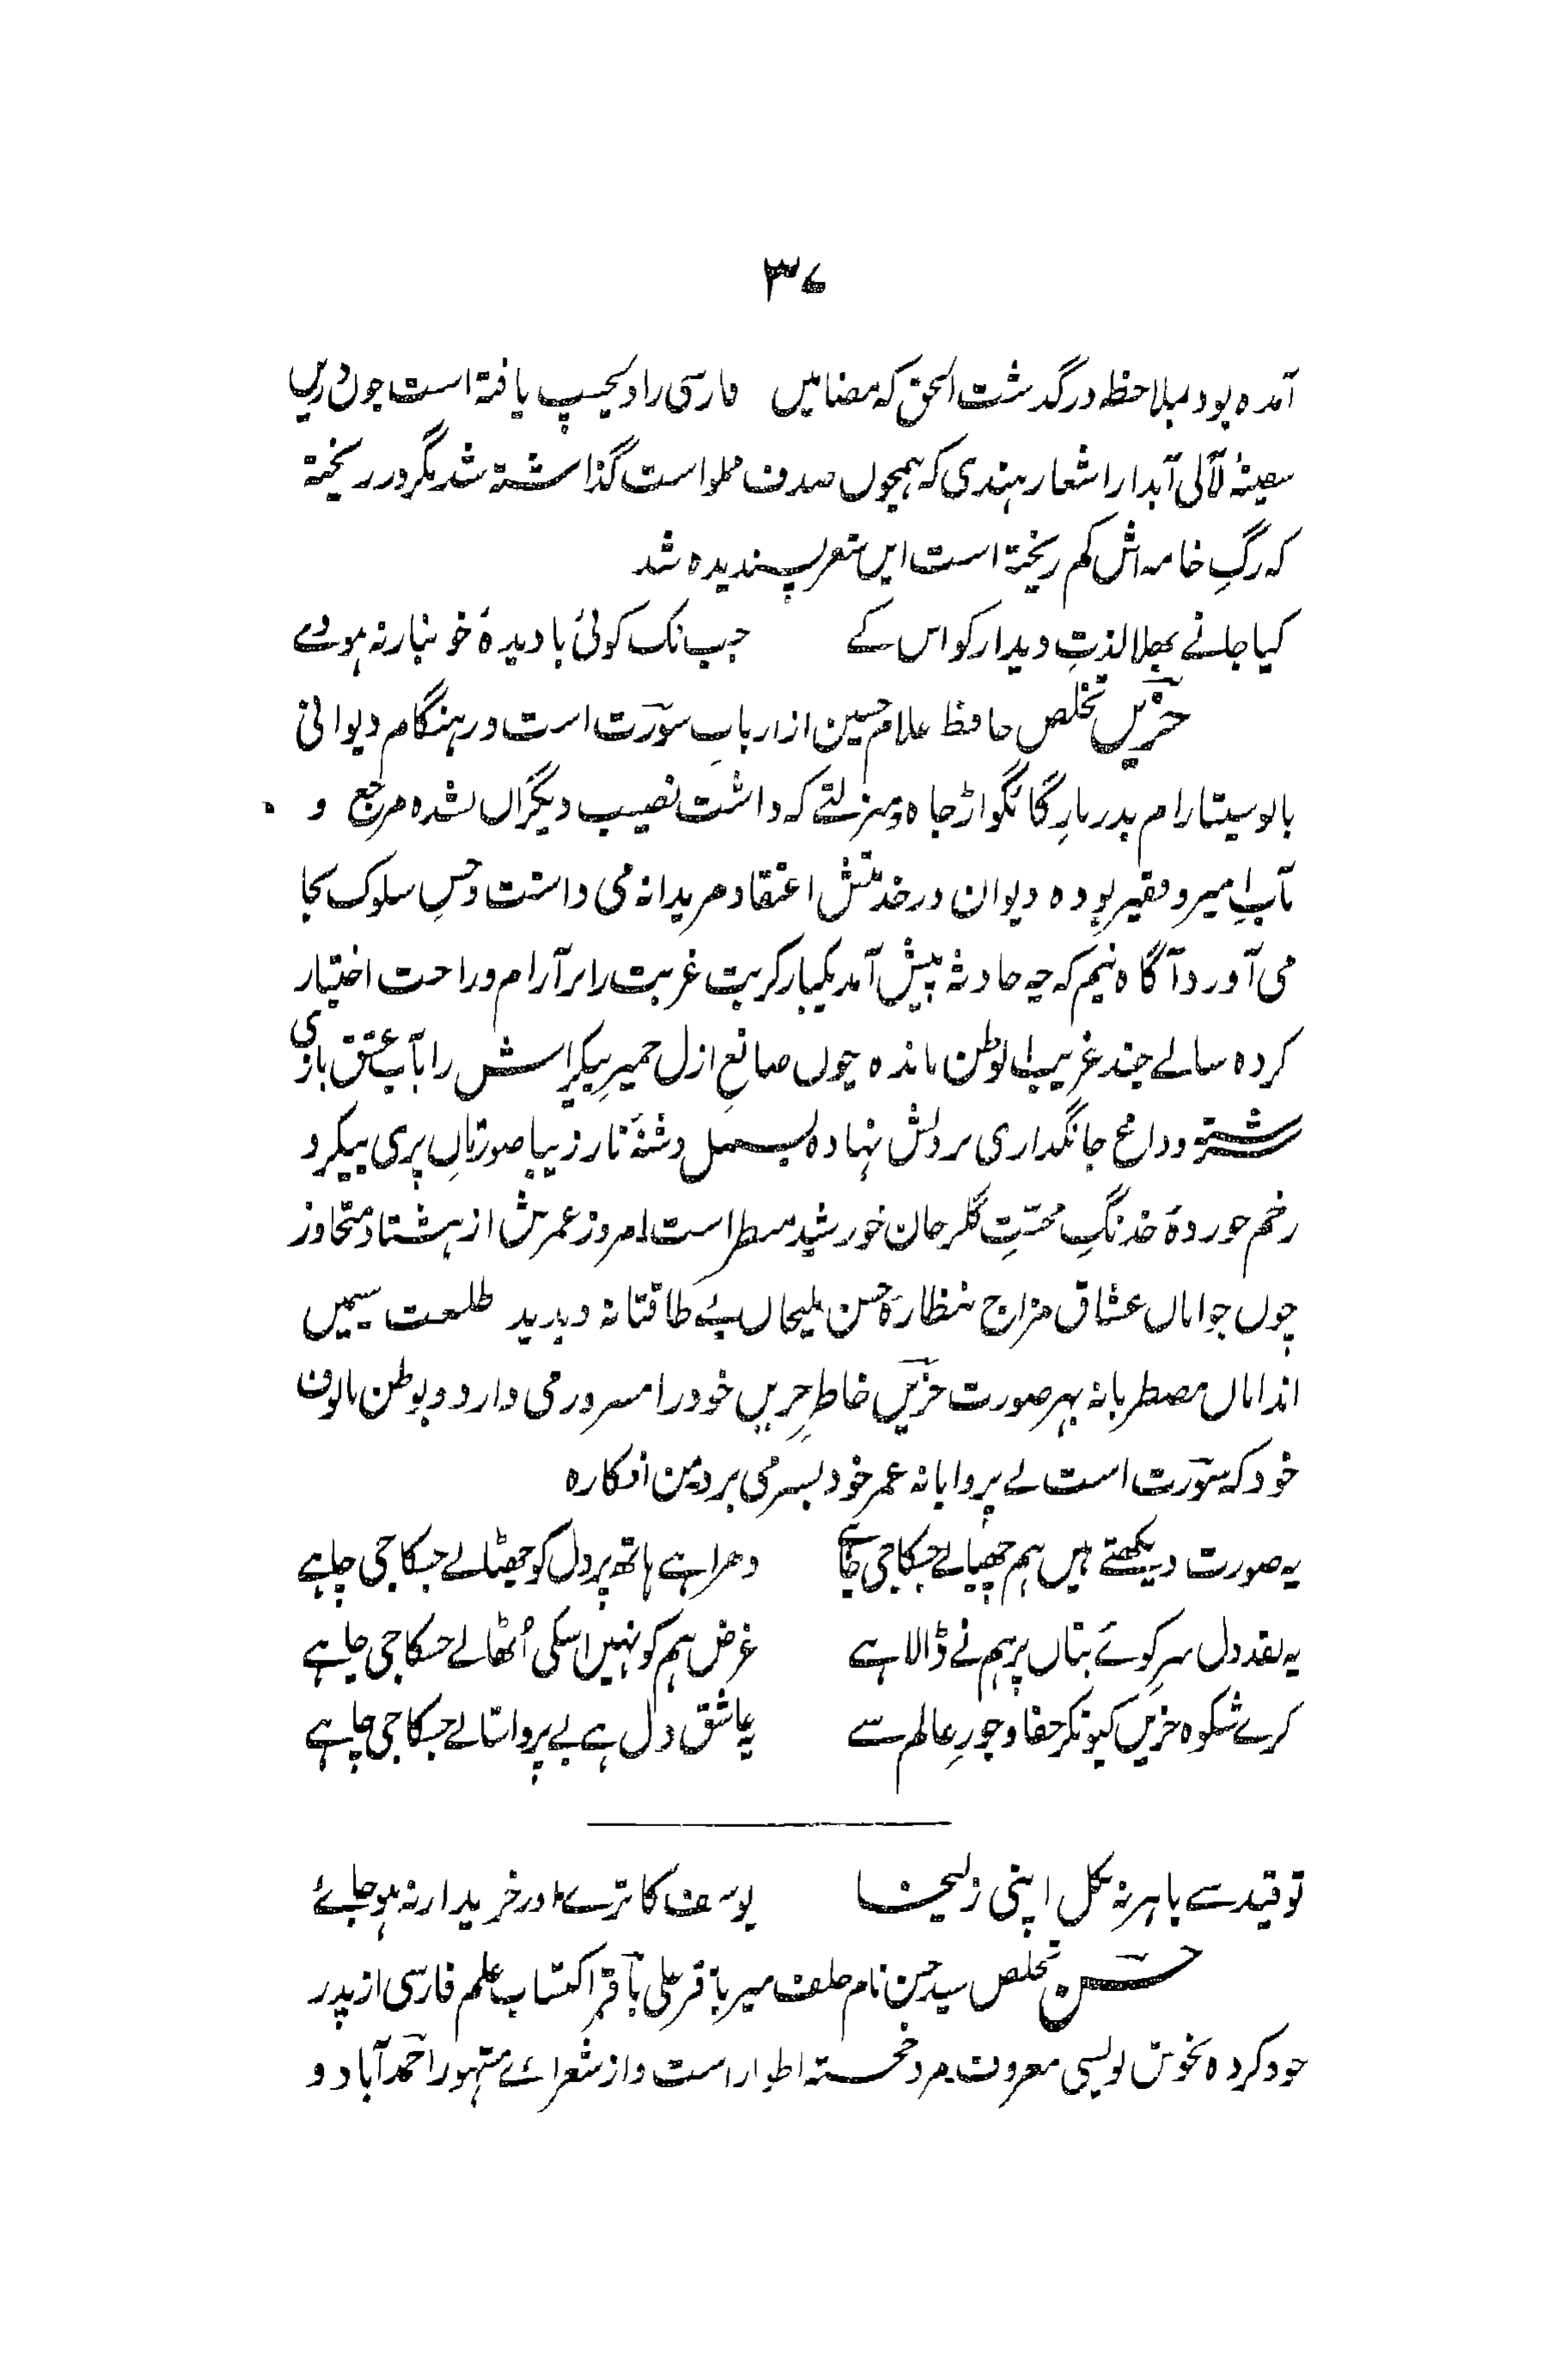 ۳۷
آمده بود بملاحظه در گدشت الحق که مضامیں فارسی را دلچسپ یافته است چوں دریں
سفینهٔ لآلی آبدار اشعار ہندی که ہمچوں صدف مملو است گذاشته شد مگر در ریخته
که رگِ خامه اش کم ریخته است ایں شعر پسندیده شد
کیا جانے بھلا لذتِ دیدار کو اس کے جب تک کوئی با دیدهٔ خونبار نہ ہووے
حزیں تخلص حافظ غلام حسین از اربابِ سورت است در ہنگام دیوانی
بابو سیتارام بدربارِ گائگواڑ جاه و منزلتے که داشت نصیب دیگراں نشده مرجع و
مآبِ امیر و فقیر بوده دیوان در خدمتش اعتقاد مریدانه می داشت و حسنِ سلوک بجا
می آورد آگاه نیم که چه حادثه پیش آمد یکبار کربتِ غربت را بر آرام و راحت اختیار
کرده سالے چند غریب الوطن مانده چوں صانعِ ازل خمیرِ پیکرِ اش را بآبِ عشق بازی
سرشته و داغِ جانگداری بر دلش نہاده بسمل دشنهٔ ناز زیبا صورتانِ پری پیکر و
زخم خوردهٔ خدنگِ محبّتِ گلرخان خورشید منظر است امروز عمرش از ہشتاد متجاوز
چوں جواناں عشاق مزاج بنظارهٔ حسن ملیحاں بے طاقتانه و بدید طلعت سیمیں
انداماں مضطربانه بہر صورت حزیں خاطرِ حزیں خود را مسرور می دارد و بوطن مالوف
خود که سورت است بے پروایانه عمر خود بسر می برد من افکاره
یہ صورت دیکھتے ہیں ہم چھپالے جسکا جی چاہے دھرا ہے ہاتھ پر دل کو چھٹالے جسکا جی چاہے
یہ نقد دل سرِ کوئے بتاں پر ہم نے ڈالا ہے غرض ہم کو نہیں اسکی اُٹھالے جسکا جی چاہے
کرے شکوه حزیں کیونکر جفا و جورِ عالم سے یہ عاشق دل ہے بے پروا ستالے جسکا جی چاہے
تو قید سے باہر نہ نکل اپنی زلیخا یوسف کا ترے اور خریدار نہ ہو جائے
حسن تخلص سید حسن نام خلف میر باقر علی باقر اکتساب علم فارسی از پدر
خود کرده بخوش نویسی معروف مرد خجسته اطوار است و از شعرائے مشہور احمدآباد و